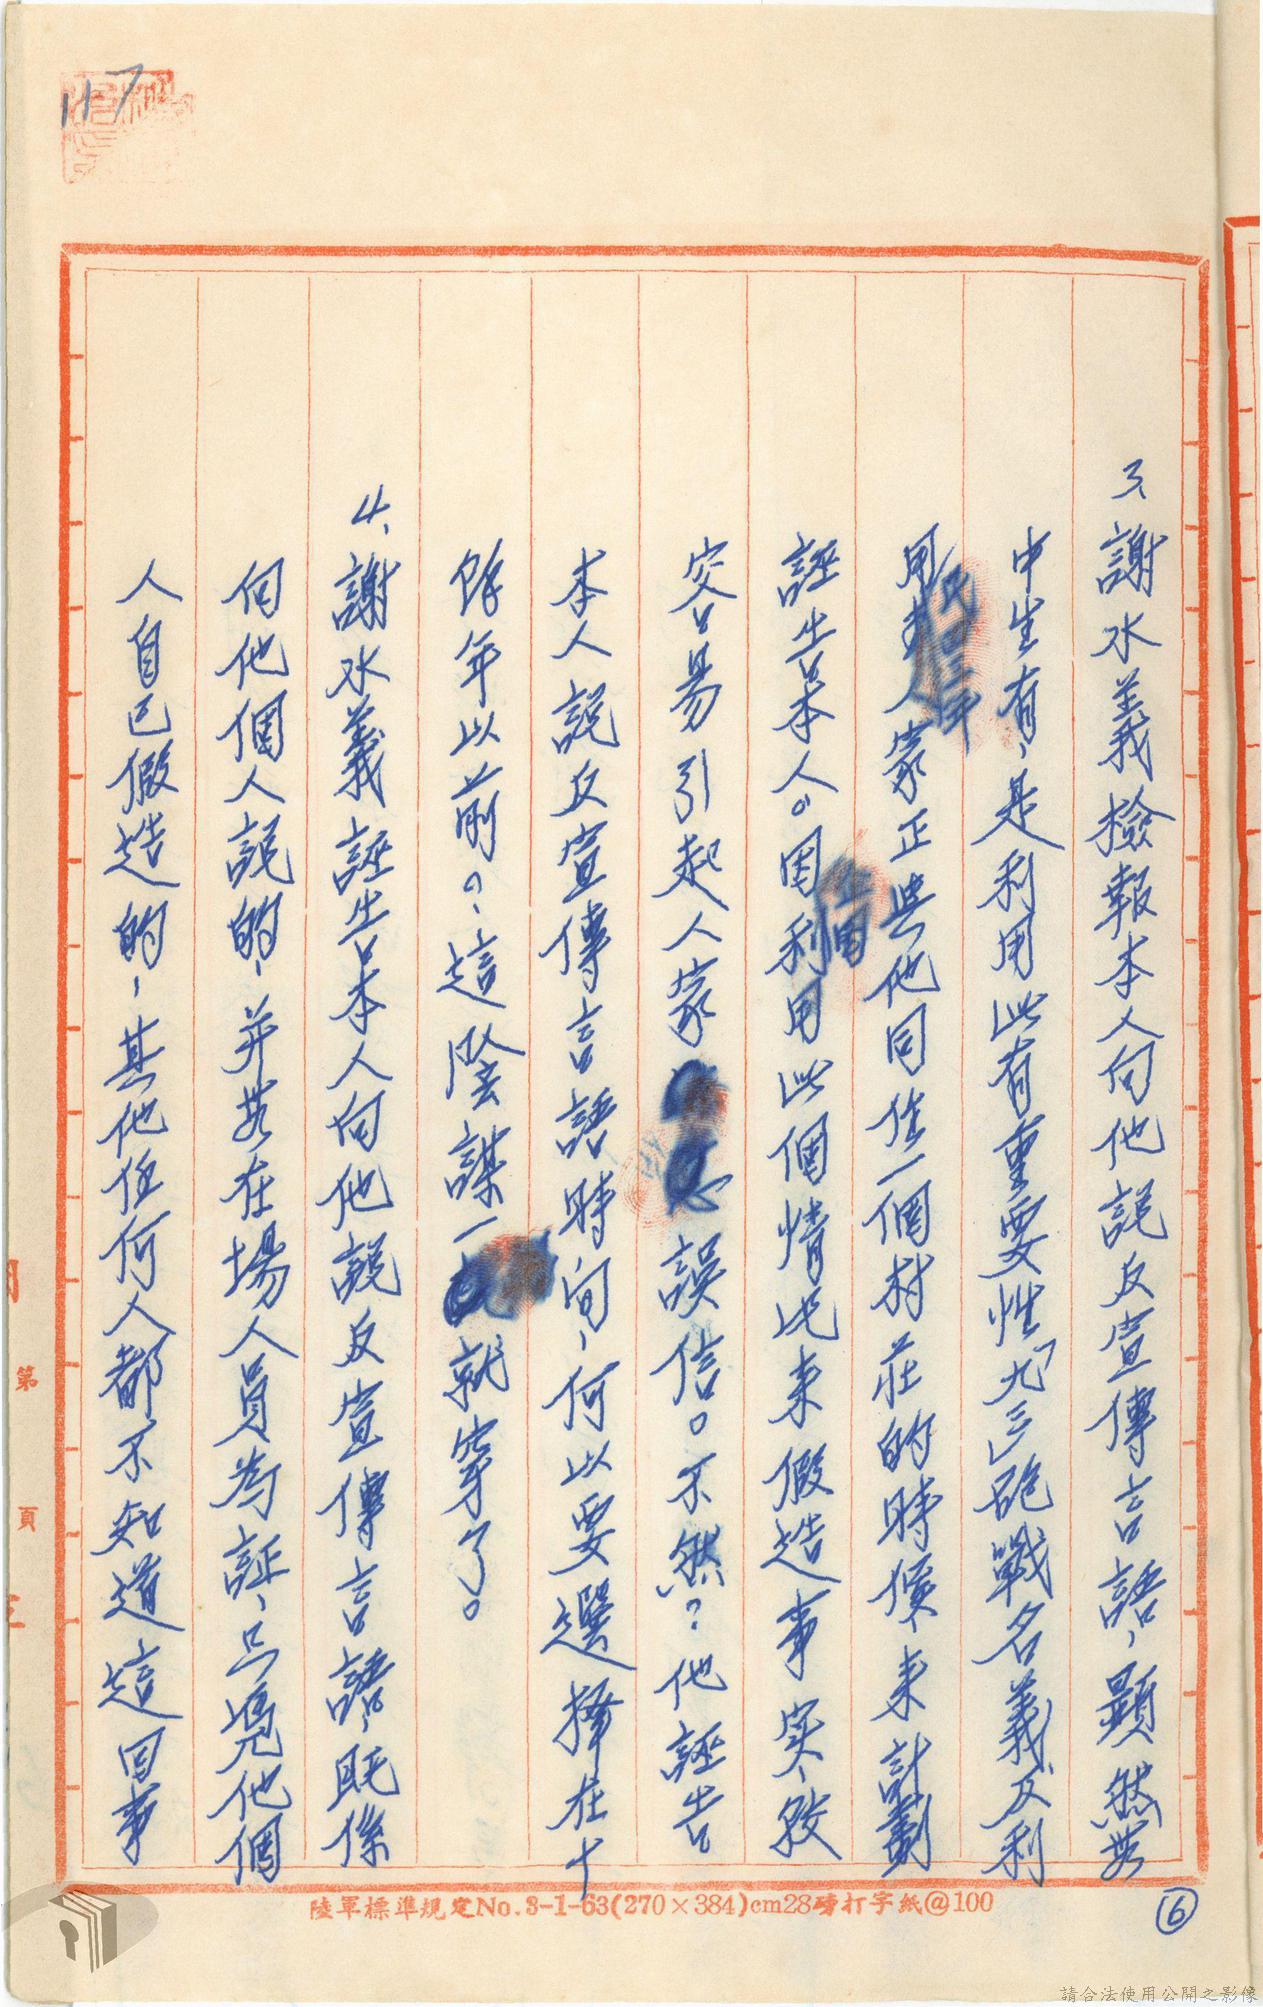 117
3、謝水義檢報本人向他說反宣傳言語，顯然無
中生有，是利用此有重要性「九三」砲戰名義及利
用本人家正與他同住一個村莊的時候，來計劃
民国三年
誣告本人。因利用此個情此來假造事實，較
容易引起人家誤信。不然？他誣告
本人說反宣傳言語時间，何以要選擇在十
餘年以前？，這陰謀一就穿了。
4、謝水義誣告本人向他說反宣傳言語，既係
向他個人說的，并無在場人員為証，只憑他個
人自己假造的，其他任何人都不知道這回事
第 頁
陸軍標準規定No.3-1-63(270×384)cm28磅打字紙@100
⑥
請合法使用公開之影像